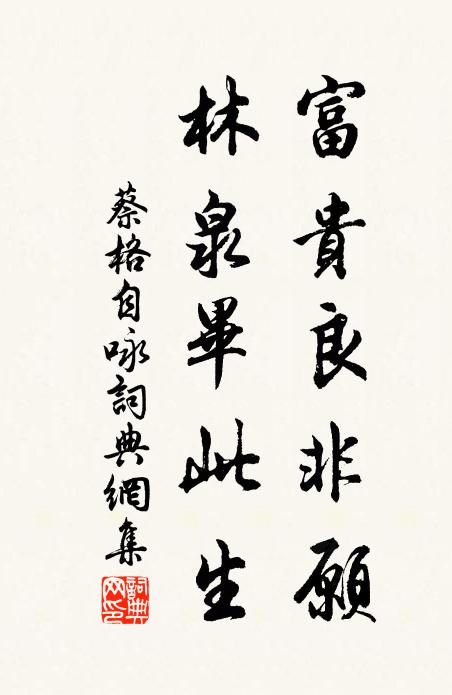 富貴良非願
林泉畢此生
蔡格自咏詞典網集
詞典網印